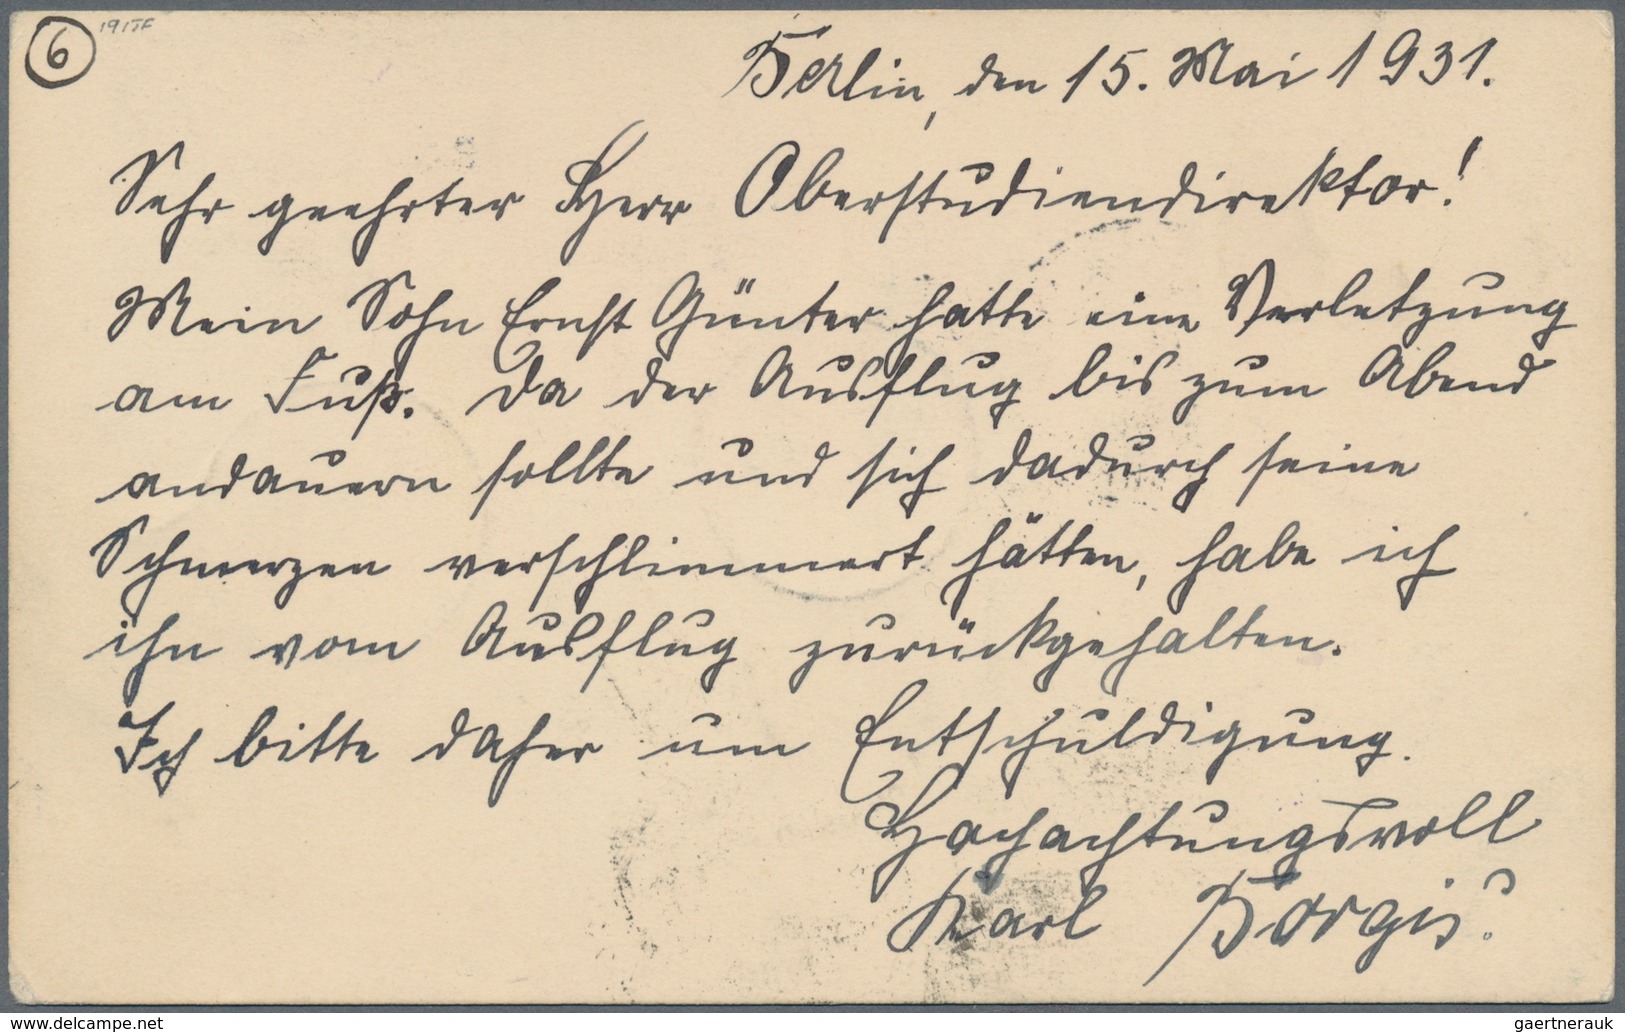 6
Berlin, den 15. Mai 1931.
Sehr geehrter Herr Oberstudiendirektor!
Mein Sohn Ernst Günter hatte eine Verletzung
am Fuß. Da der Ausflug bis zum Abend
andauern sollte und sich dadurch seine
Schmerzen verschlimmert hätten, habe ich
ihn vom Ausflug zurückgehalten.
Ich bitte daher um Entschuldigung.
Hochachtungsvoll
Karl Borgis
www.delcampe.net
gaertnerauk